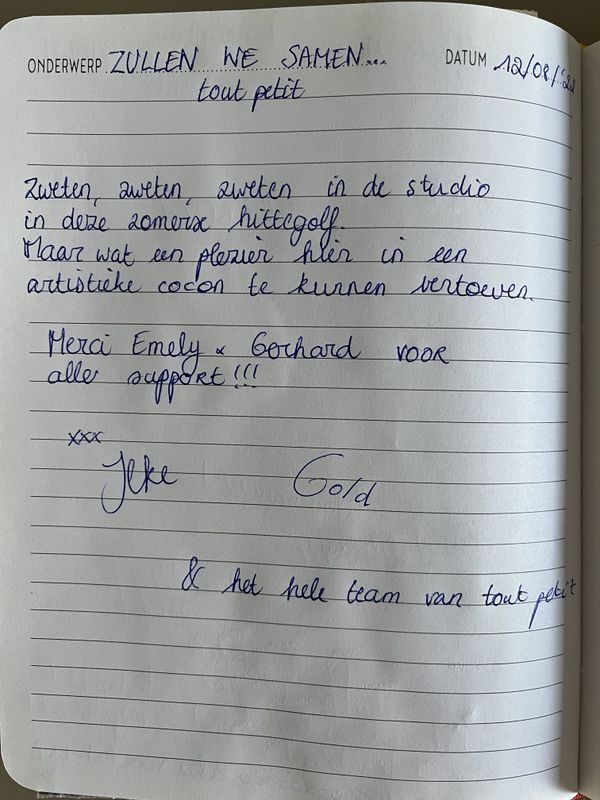 ONDERWERP ZULLEN WE SAMEN... DATUM 12/08/'22
tout petit
Zweten, zweten, zweten in de studio
in deze zomerse hittegolf.
Maar wat een plezier hier in een
artistieke cocon te kunnen vertoeven.
Merci Emely & Gerhard voor
alle support!!!
xxx
Ilke Gold
& het hele team van tout petit